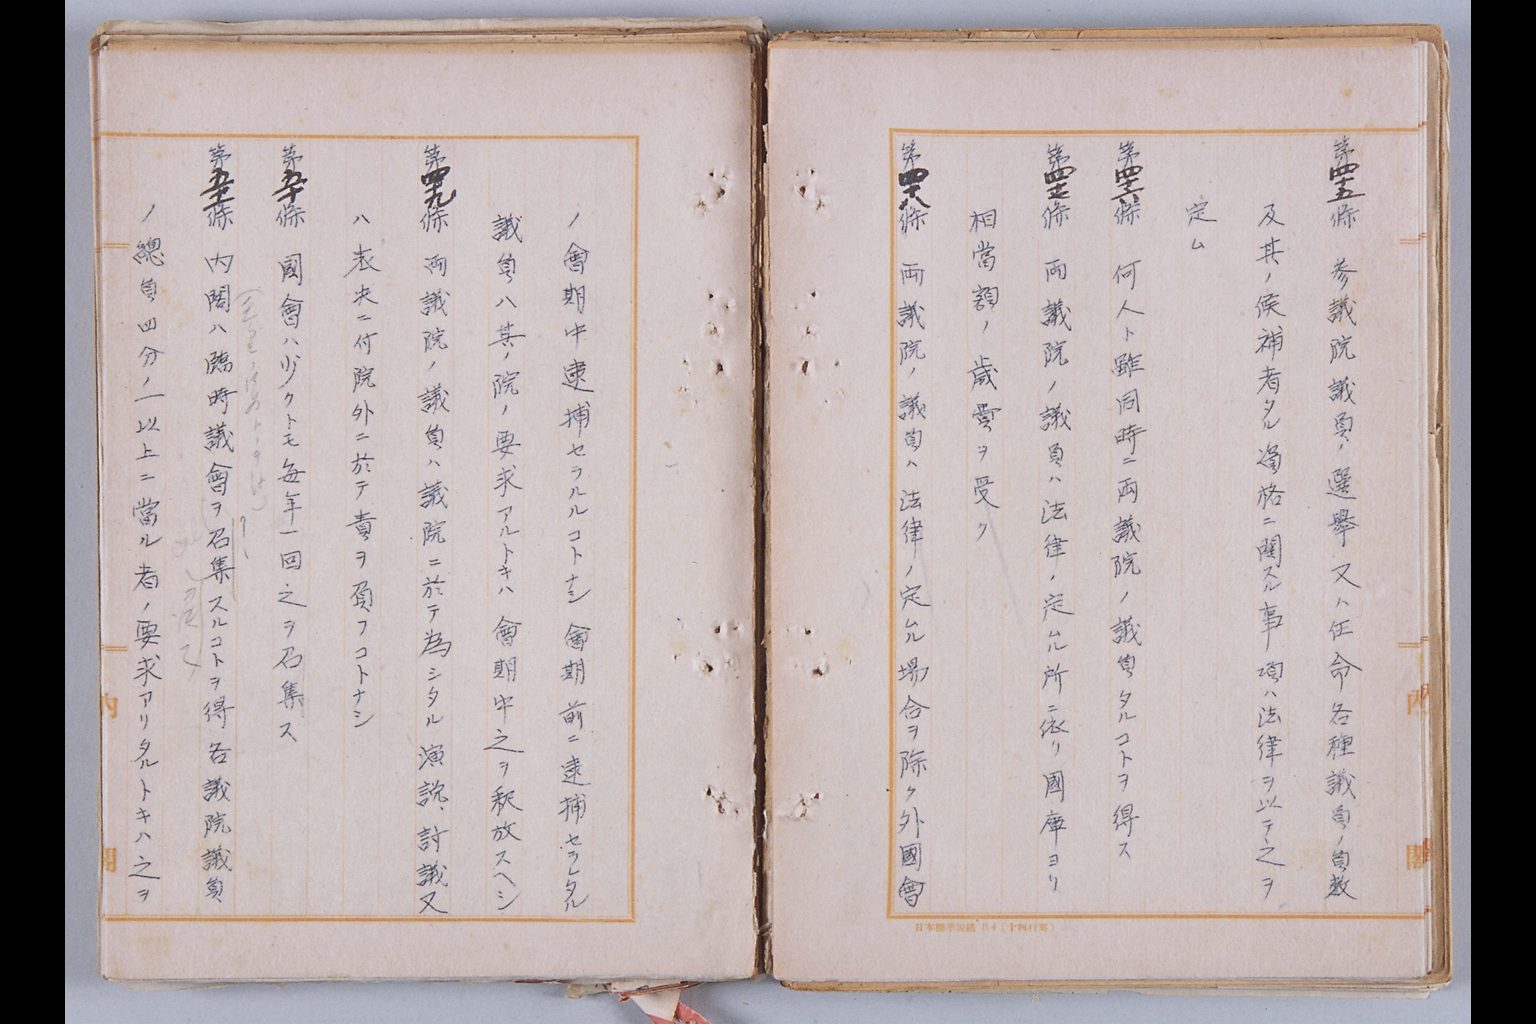 第四十五條 参議院議員ノ選擧又ハ任命各種議員ノ員数
及其ノ候補者タル資格ニ関スル事項ハ法律ヲ以テ之ヲ
定ム
第四十六條 何人ト雖同時ニ両議院ノ議員タルコトヲ得ス
第四十七條 両議院ノ議員ハ法律ノ定ムル所ニ依リ國庫ヨリ
相當額ノ歳費ヲ受ク
第四十八條 両議院ノ議員ハ法律ノ定ムル場合ヲ除ク外國會
ノ會期中逮捕セラルルコトナシ會期前ニ逮捕セラレタル
議員ハ其ノ院ノ要求アルトキハ會期中之ヲ釈放スヘシ
第四十九條 両議院ノ議員ハ議院ニ於テ為シタル演説、討議又
ハ表決ニ付院外ニ於テ責ヲ負フコトナシ
第五十條 國會ハ少クトモ毎年一回之ヲ召集ス
第五十一條 内閣ハ臨時議會ヲ召集スルコトヲ得各議院議員
ノ總員四分ノ一以上ニ當ル者ノ要求アリタルトキハ之ヲ
内閣
内閣
日本標準規格B4(十四行罫)